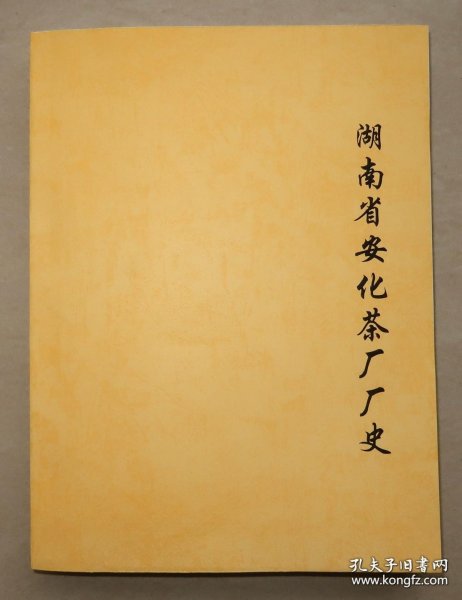 湖南省安化茶厂厂史
孔夫子旧书网
www.kongfz.com